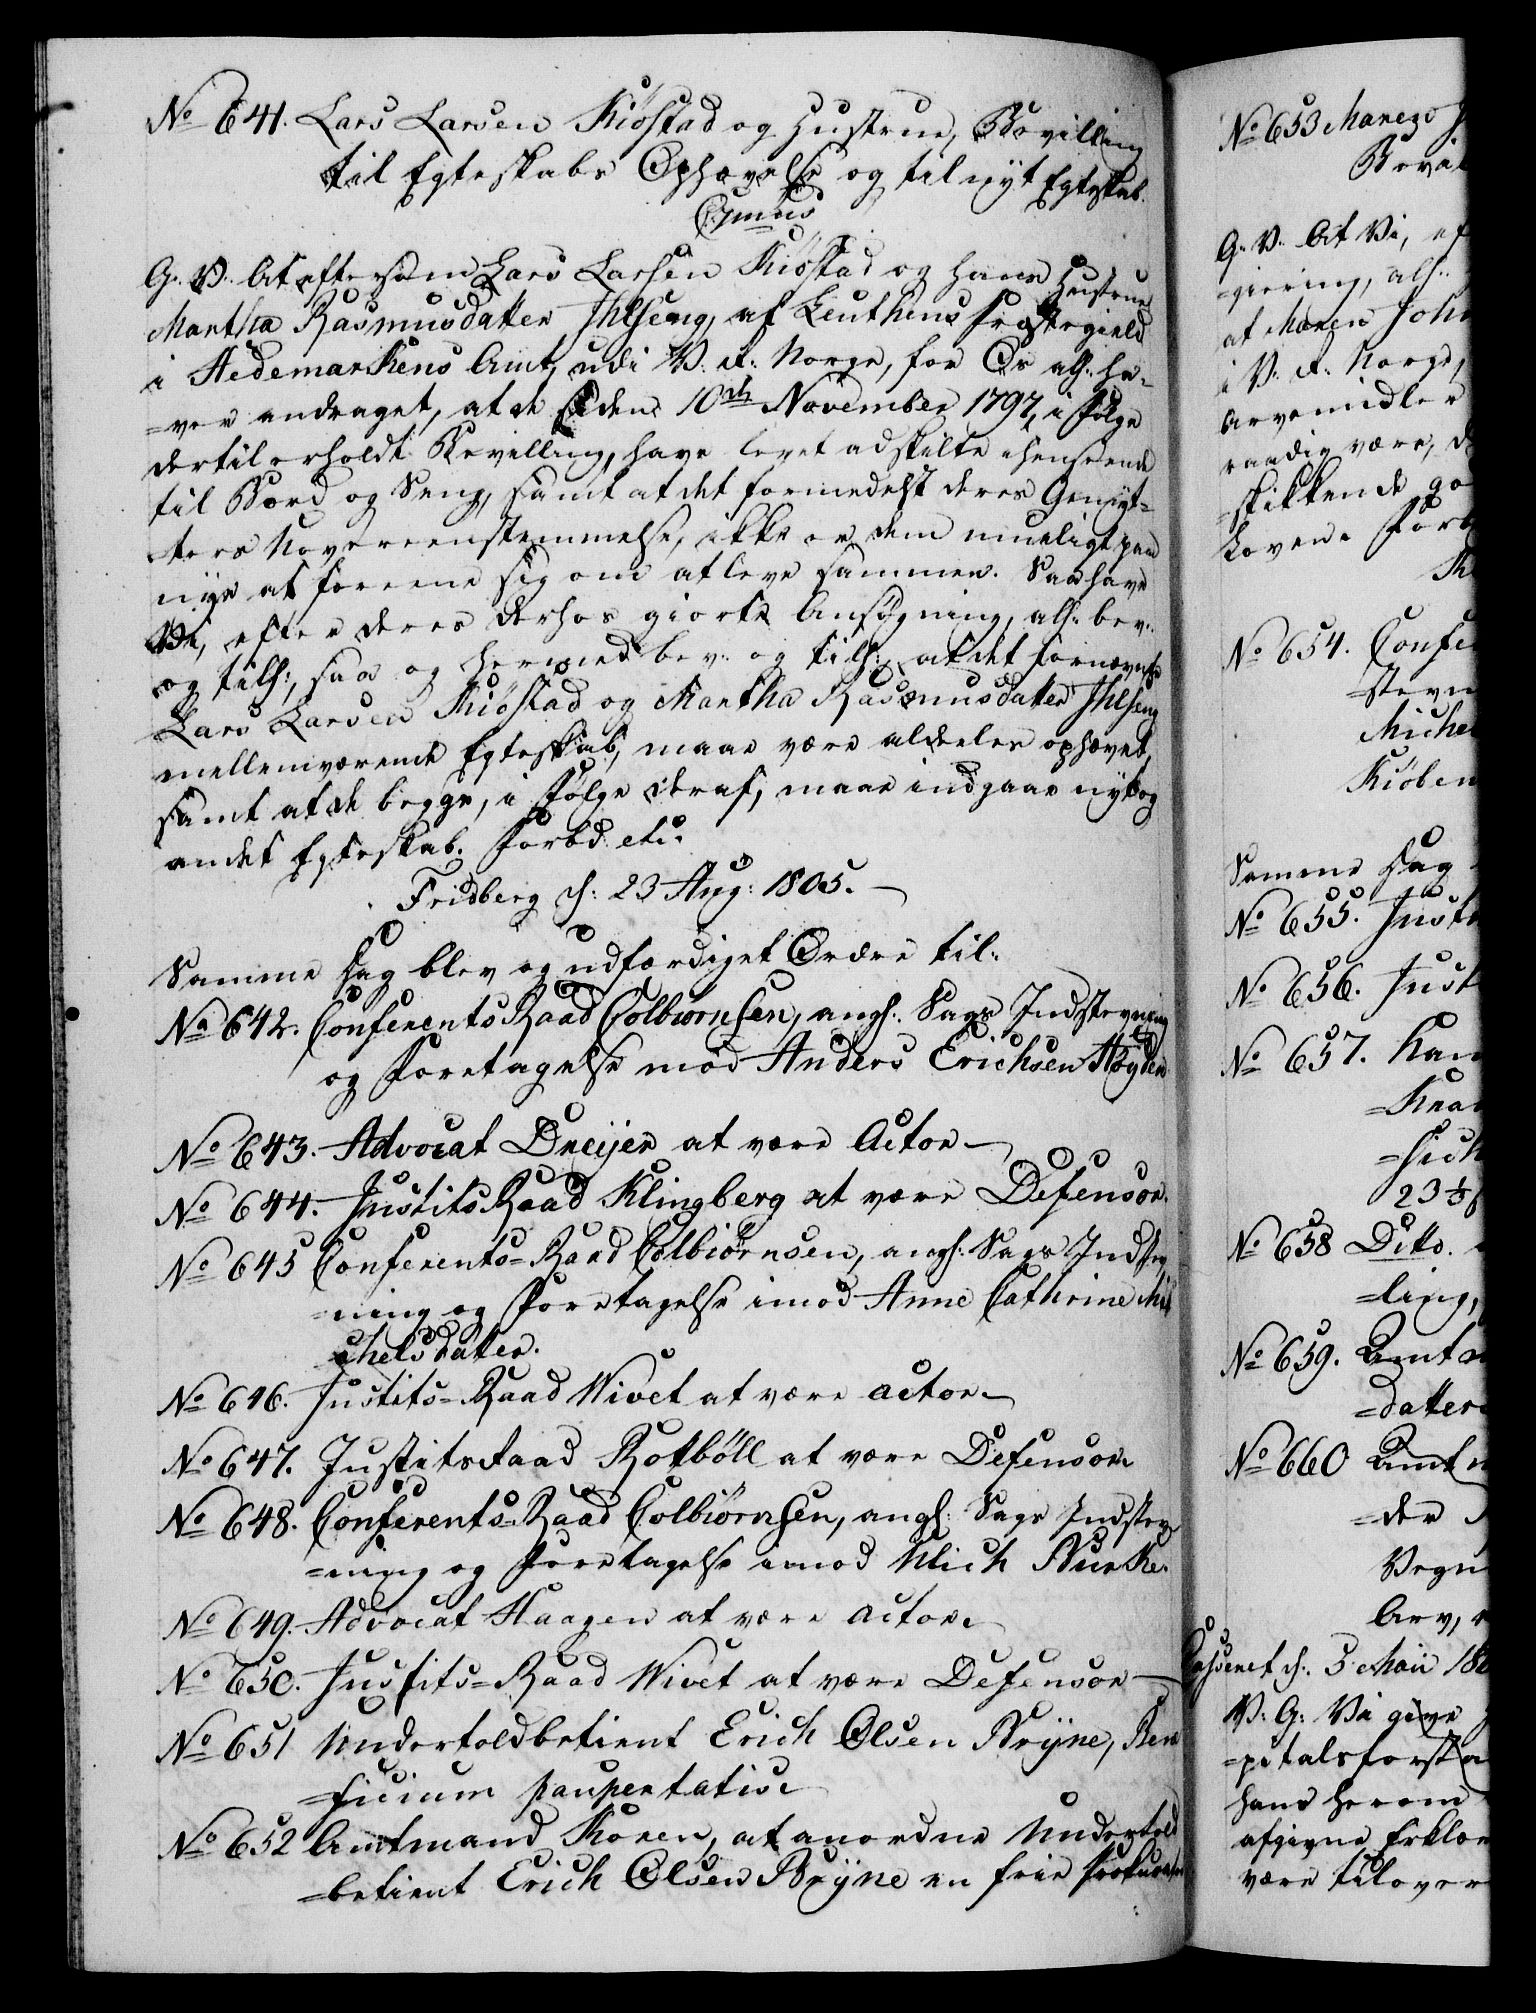 No 641. Lars Larsen Kiøstad og Hustrue, Bevilling
til Egteskabs Ophævelse og til nyt Egteskab.
Gratis
G. V. At eftersom Lars Larsen Kiøstad og hans Hustrue
Martha Rasmusdatter Ihlseng, af Leuthens Præstegield
i Hedemarkens Amt, udi V. R. Norge, for Os all. ha-
=ver andraget, at de siden 10de November 1797, i Følge
dertil erholdt Bevilling, have levet adskilte i henseende
til Bord og Seng, samt at det formedelst deres Gemyt-
ters Uovereenstemmelse, ikke er dem mueligt paa
nye at foreene sig om at leve sammen. Saa have
Vi, efter deres derhos giorte Ansøgning, all. bev:
og till:, saa og hermed bev: og till:, at det fornævnte
Lars Larsen Kiøstad og Martha Rasmusdatter Ihlseng
mellemværende Egteskab, maae være aldeeles ophævet,
samt at de begge, i Følge deraf, maae indgaae nyt og
andet Egteskab. Forbd. etc.
Fridberg d: 23 Aug: 1805.
Samme Dag blev og udfærdiget Ordre til:
No 642. ConferentsRaad Colbiørnsen, angl. Sags Indstevning
og Foretagelse mod Anders Erichsen Høyden
No 643. Advocat Dreijer at være Actor
No 644. JustitsRaad Klingberg at være Defensor.
No 645 Conferents=Raad Colbiørnsen, angl: Sags Indstev
=ning og Foretagelse imod Anne Cathrine Mi
chelsdatter.
No 646. Justits=Raad Wivet at være actor
No 647. Justitsraad Rotbøll at være Defensor
No 648. Conferents=Raad Colbiørnsen, angl. Sags Indstev
=ning og Foretagelse imod Ulich
No 649. Advocat Haagen at være actor
No 650. Justits=Raad Wivet at være Defensor
No 651 Undertoldbetient Erich Olsen Bryne, Bene
=ficium paupertatis
No 652 Amtmand Koren, at anordne Undertold
=betient Erich Olsen Bryne en frie Prokurator
No 653 Marens
Bevil
G. V. At Vi, ef
=giering, all:
at Maren Joh
i V. R. Norge,
Arvemidler
raadig være, d
=skikkende go
Lovens Forb
No 654. Confe
=stevn
Michel
Kiøben
Samme Dag
No 655. Justi
No 656. Just
No 657. Kam
23
No 658 Dito.
=ling,
No 659. Amtm
=datter
No 660 Amtm
=der
Vegn
Arv,
d. 3 Maii 180
V: G: Vi give
=pitalsforsta
hans herom
afgivne Erklær
være tilover